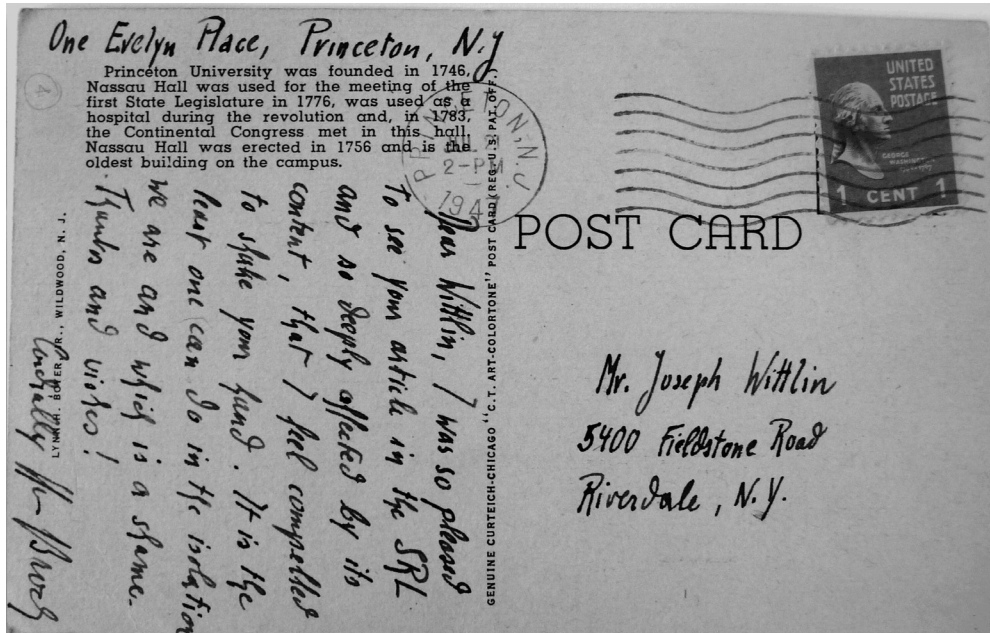 One Evelyn Place, Princeton, N.J
Princeton University was founded in 1746.
Nassau Hall was used for the meeting of the
first State Legislature in 1776, was used as a
hospital during the revolution and, in 1783,
the Continental Congress met in this hall.
Nassau Hall was erected in 1756 and is the
oldest building on the campus.
PRINCETON, N.J.
2-PM
UNITED
STATES
POSTAGE
GEORGE
WASHINGTON
1 CENT 1
POST CARD
GENUINE CURTEICH-CHICAGO "C.T. ART-COLORTONE" POST CARD (REG. U.S. PAT. OFF.)
Dear Wittlin, I was so pleased
to see your article in the SRL
and so deeply affected by its
content, that I feel compelled
to shake your hand. It is the
least one can do in the isolation
we are and which is a shame.
Thanks and wishes!
Cordally
LYNN H. BOYER, JR., WILDWOOD, N. J.
Mr. Joseph Wittlin
5400 Fieldstone Road
Riverdale, N.Y.